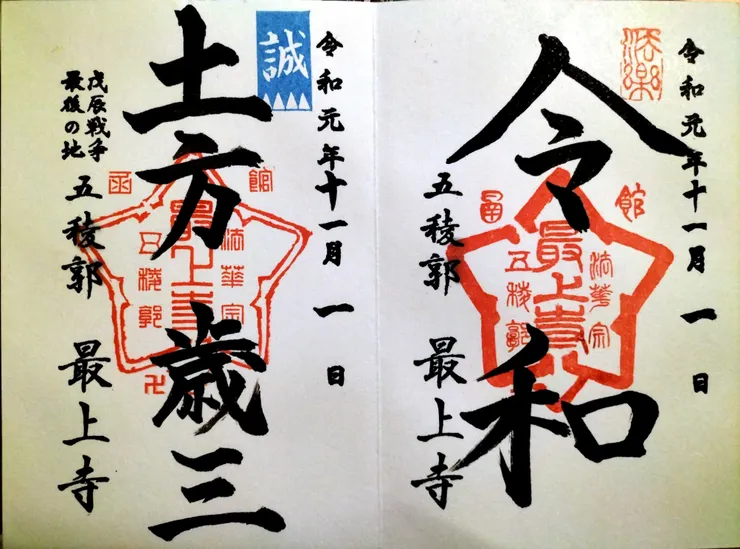 令和元年十一月一日
令和
函館
法華宗
最上寺
五稜郭
五稜郭 最上寺
令和元年十一月一日
誠
土方歳三
函館
法華宗
最上寺
五稜郭
戊辰戦争
最後の地
五稜郭 最上寺